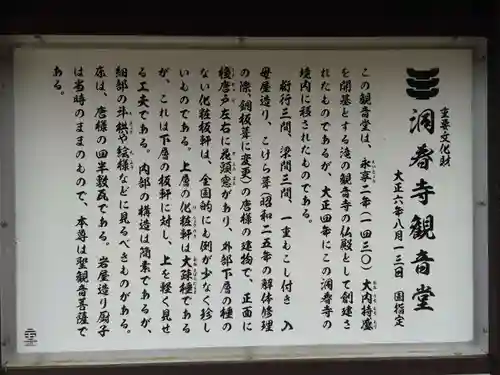 重要文化財
洞春寺観音堂
大正六年八月一三日 国指定
この観音堂は、永享二年(一四三〇)大内持盛
を開基とする滝の観音寺の仏殿として創建さ
れたものであるが、大正四年にこの洞春寺の
境内に移されたものである。
桁行三間、梁間三間、一重もこし付き 入
母屋造り、こけら葺(昭和二五年の解体修理
の際、銅板葺に変更)の唐様の建物で、正面に
棧唐戸左右に花頭窓があり、外部下層の棰の
ない化粧板軒は、全国的にも例が少なく珍し
いものである。上層の化粧軒は大疎棰である
が、これは下層の板軒に対し、上を軽く見せ
る工夫である。内部の構造は簡素であるが、
細部の斗栱や絵様などに見るべきものがある。
床は、唐様の四半敷瓦である。岩屋造り厨子
は当時のままのもので、本尊は聖観音菩薩で
ある。